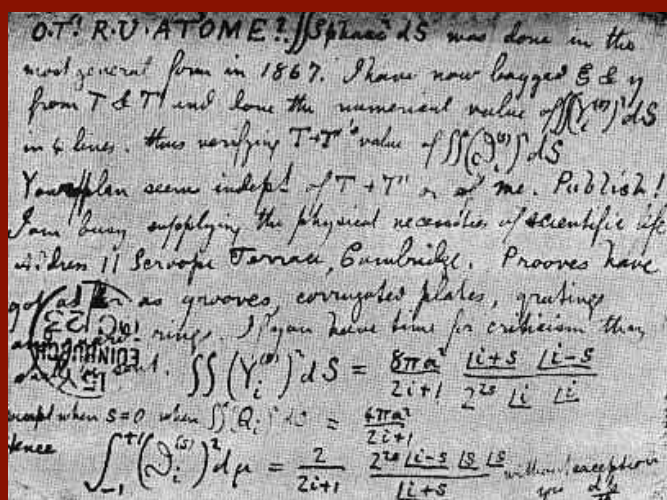 O.T'! R.U. AT 'OME? ∬Spharc² dS was done in the
most general form in 1867. I have now bagged ξ & η
from T & T' and done the numerical value of ∬(Y_i^{(s)})² dS
in 4 lines. thus verifying T+T''s value of ∬(ϑ_i^{(s)})² dS
Your plan seems indept of T+T' or of me. Publish!
I am busy supplying the physical necessities of scientific life
Address 11 Scroope Terrace, Cambridge. Prooves have
got as far as grooves, corrugated plates, gratings
rings. If you have time for criticism then
out. ∬(Y_i^{(s)})² dS = 8πa²/(2i+1) · |i+s |i-s / 2^{2s} |i |i
except when s=0 when ∬(Q_i)² dS = 4πa²/(2i+1)
Hence
∫_{-1}^{+1} (ϑ_i^{(s)})² dμ = 2/(2i+1) · 2^{2s} |i-s |s |s / |i+s without exception
yrs
EDINBURGH